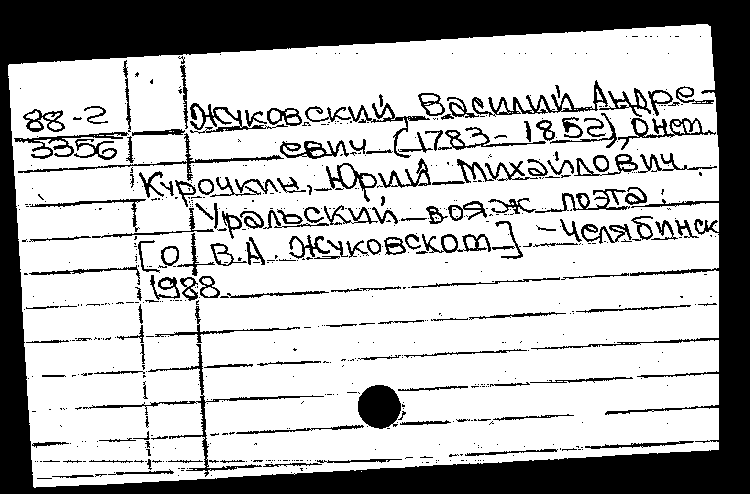 88-2
3356
Жуковский, Василий Андре-
евич (1783-1852), о нем.
Курочкин, Юрий Михайлович.
Уральский вояж поэта:
[О В.А. Жуковском] -Челябинск
1988.